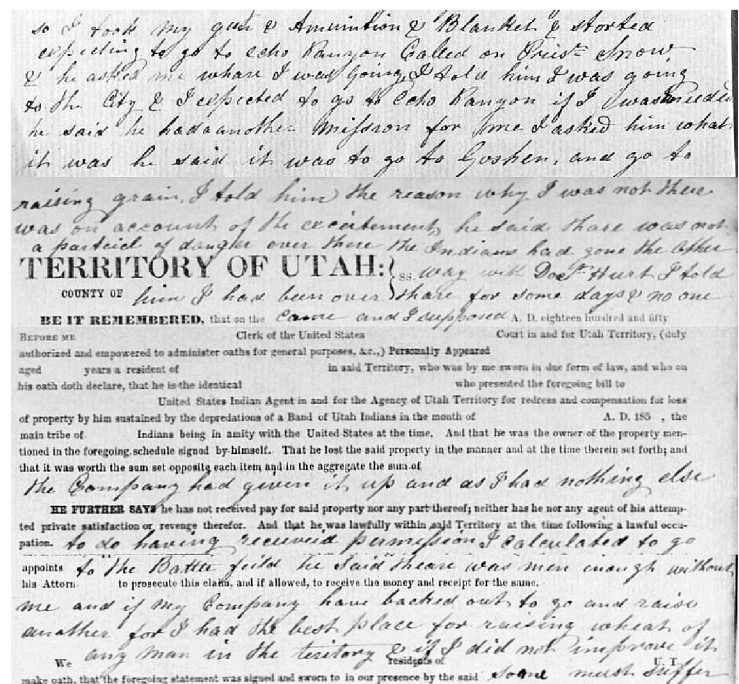 so I took my gun & Amunition & Blanket & storted
expecting to go to echo Kanyon Called on Prist Snow
& he asked me whare I was going I told him I was going
to the City & I expected to go to Echo Kanyon if I was needed
he said he had aanother mission for me I asked him what
it was he said it was to go to Goshen, and go to
raising grain, I told him the reason why I was not there
was on account of the exceitement, he said thare was not
a particiel of danger over there the Indians had gone the other
TERRITORY OF UTAH: } ss. way with Doct Hurt I told
COUNTY OF him I had been over thare for some days & no one
BE IT REMEMBERED, that on the came and I supposed A. D. eighteen hundred and fifty
BEFORE ME Clerk of the United States Court in and for Utah Territory, (duly
authorized and empowered to administer oaths for general purposes, &c.,) Personally Appeared
aged years a resident of in said Territory, who was by me sworn in due form of law, and who on
his oath doth declare, that he is the identical who presented the foregoing bill to
United States Indian Agent in and for the Agency of Utah Territory for redress and compensation for loss
of property by him sustained by the depredations of a Band of Utah Indians in the month of A. D. 185 , the
main tribe of Indians being in amity with the United States at the time. And that he was the owner of the property men-
tioned in the foregoing schedule signed by himself. That he lost the said property in the manner and at the time therein set forth; and
that it was worth the sum set opposite each item and in the aggregate the sum of
the Company had given it up and as I had nothing else
HE FURTHER SAYS he has not received pay for said property nor any part thereof; neither has he nor any agent of his attemp-
ted private satisfaction or revenge therefor. And that he was lawfully within said Territory at the time following a lawful occu-
pation. to do having receieved permession I calculated to go
appoints to the Battle feild he said theare was men enough without
his Attorn to prosecute this claim, and if allowed, to receive the money and receipt for the same.
me and if my Company have backed out to go and raise
another for I had the best place for raising wheat of
any man in the teritory & if I did not improve it
We residents of U. T.
make oath, that the foregoing statement was signed and sworn to in our presence by the said some must suffer